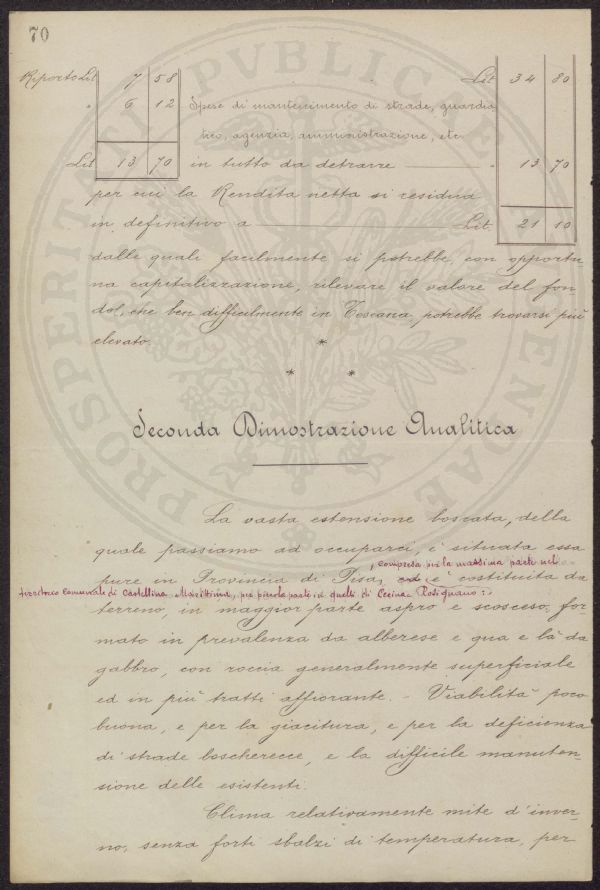 70
Riporto Lit 7 58 Lit 34 80
" 6 12 Spese di mantenimento di strade, guardia
neo, agenzia, amministrazione, etc.
Lit 13 70 in tutto da detrarre " 13 70
per cui la Rendita netta si residua
in definitivo a Lit. 21 10
dalle quali facilmente si potrebbe, con opportu-
na capitalizzazione, rilevare il valore del fon-
do, che ben difficilmente in Toscana, potrebbe trovarsi più
elevato.
*
* *
Seconda Dimostrazione Analitica
La vasta estensione boscata, della
quale passiamo ad occuparci, è situata essa
, compresa per la massima parte nel
pure in Provincia di Pisa, ed è costituita da
territorio Comunale di Castellina Marittima, per piccola parte in quelli di Cecina e Rosignano:
terreno, in maggior parte aspro e scosceso, for-
mato in prevalenza da alberese e qua e là da
gabbro, con roccia generalmente superficiale
ed in più tratti affiorante. - Viabilità poco
buona, e per la giacitura, e per la deficienza
di strade boscherecce, e la difficile manuten-
sione delle esistenti.
Clima relativamente mite d'inver-
no, senza forti sbalzi di temperatura, per
PROSPERITATI PVBLICAE AVGENDAE